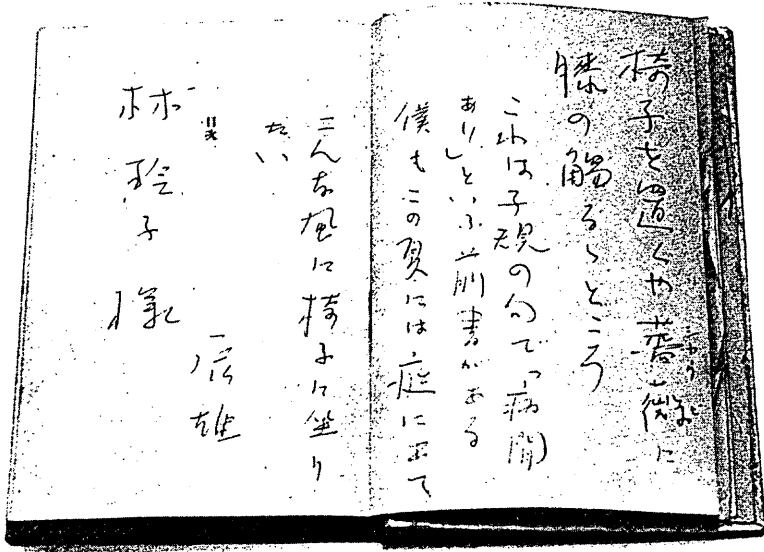 椅子を置くや薔薇に
膝の觸るゝところ
これは子規の句で(病間)
ありしといふ前書がある
僕もこの夏には庭に出て
こんな風に椅子に坐り
たい
辰雄
林玲子様